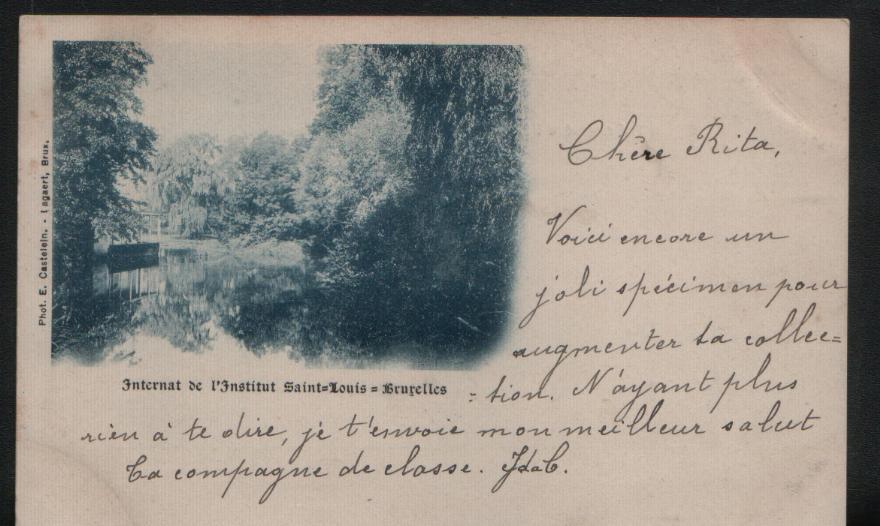 Phot. E. Castelein. - Lagaert, Brux.
Internat de l'Institut Saint=Louis = Bruxelles
Chère Rita,
Voici encore un
joli spécimen pour
augmenter ta collec=
=tion. N'ayant plus
rien à te dire, je t'envoie mon meilleur salut
Ta compagne de classe.